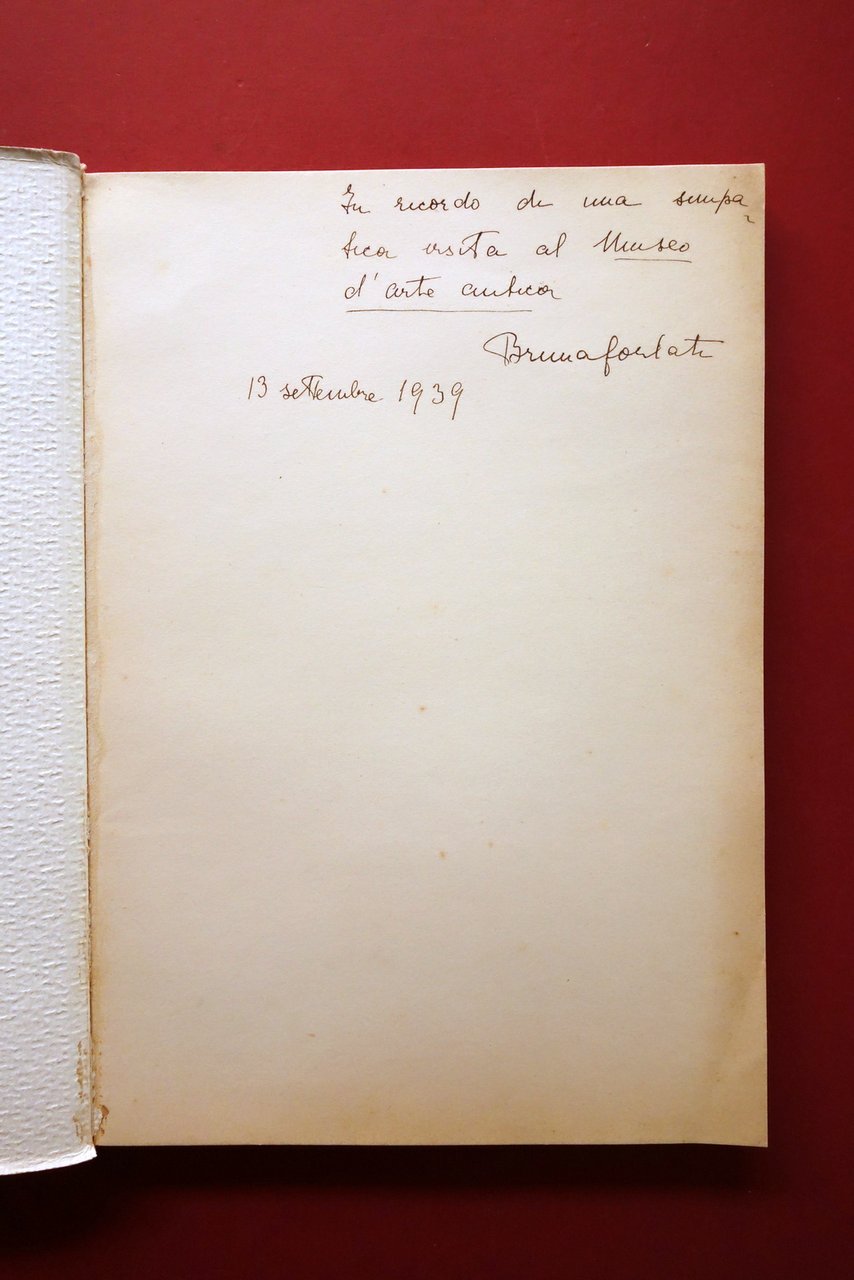 In ricordo di una simpa-
tica visita al Museo
d'arte antica
Bruna Forlati
13 settembre 1939